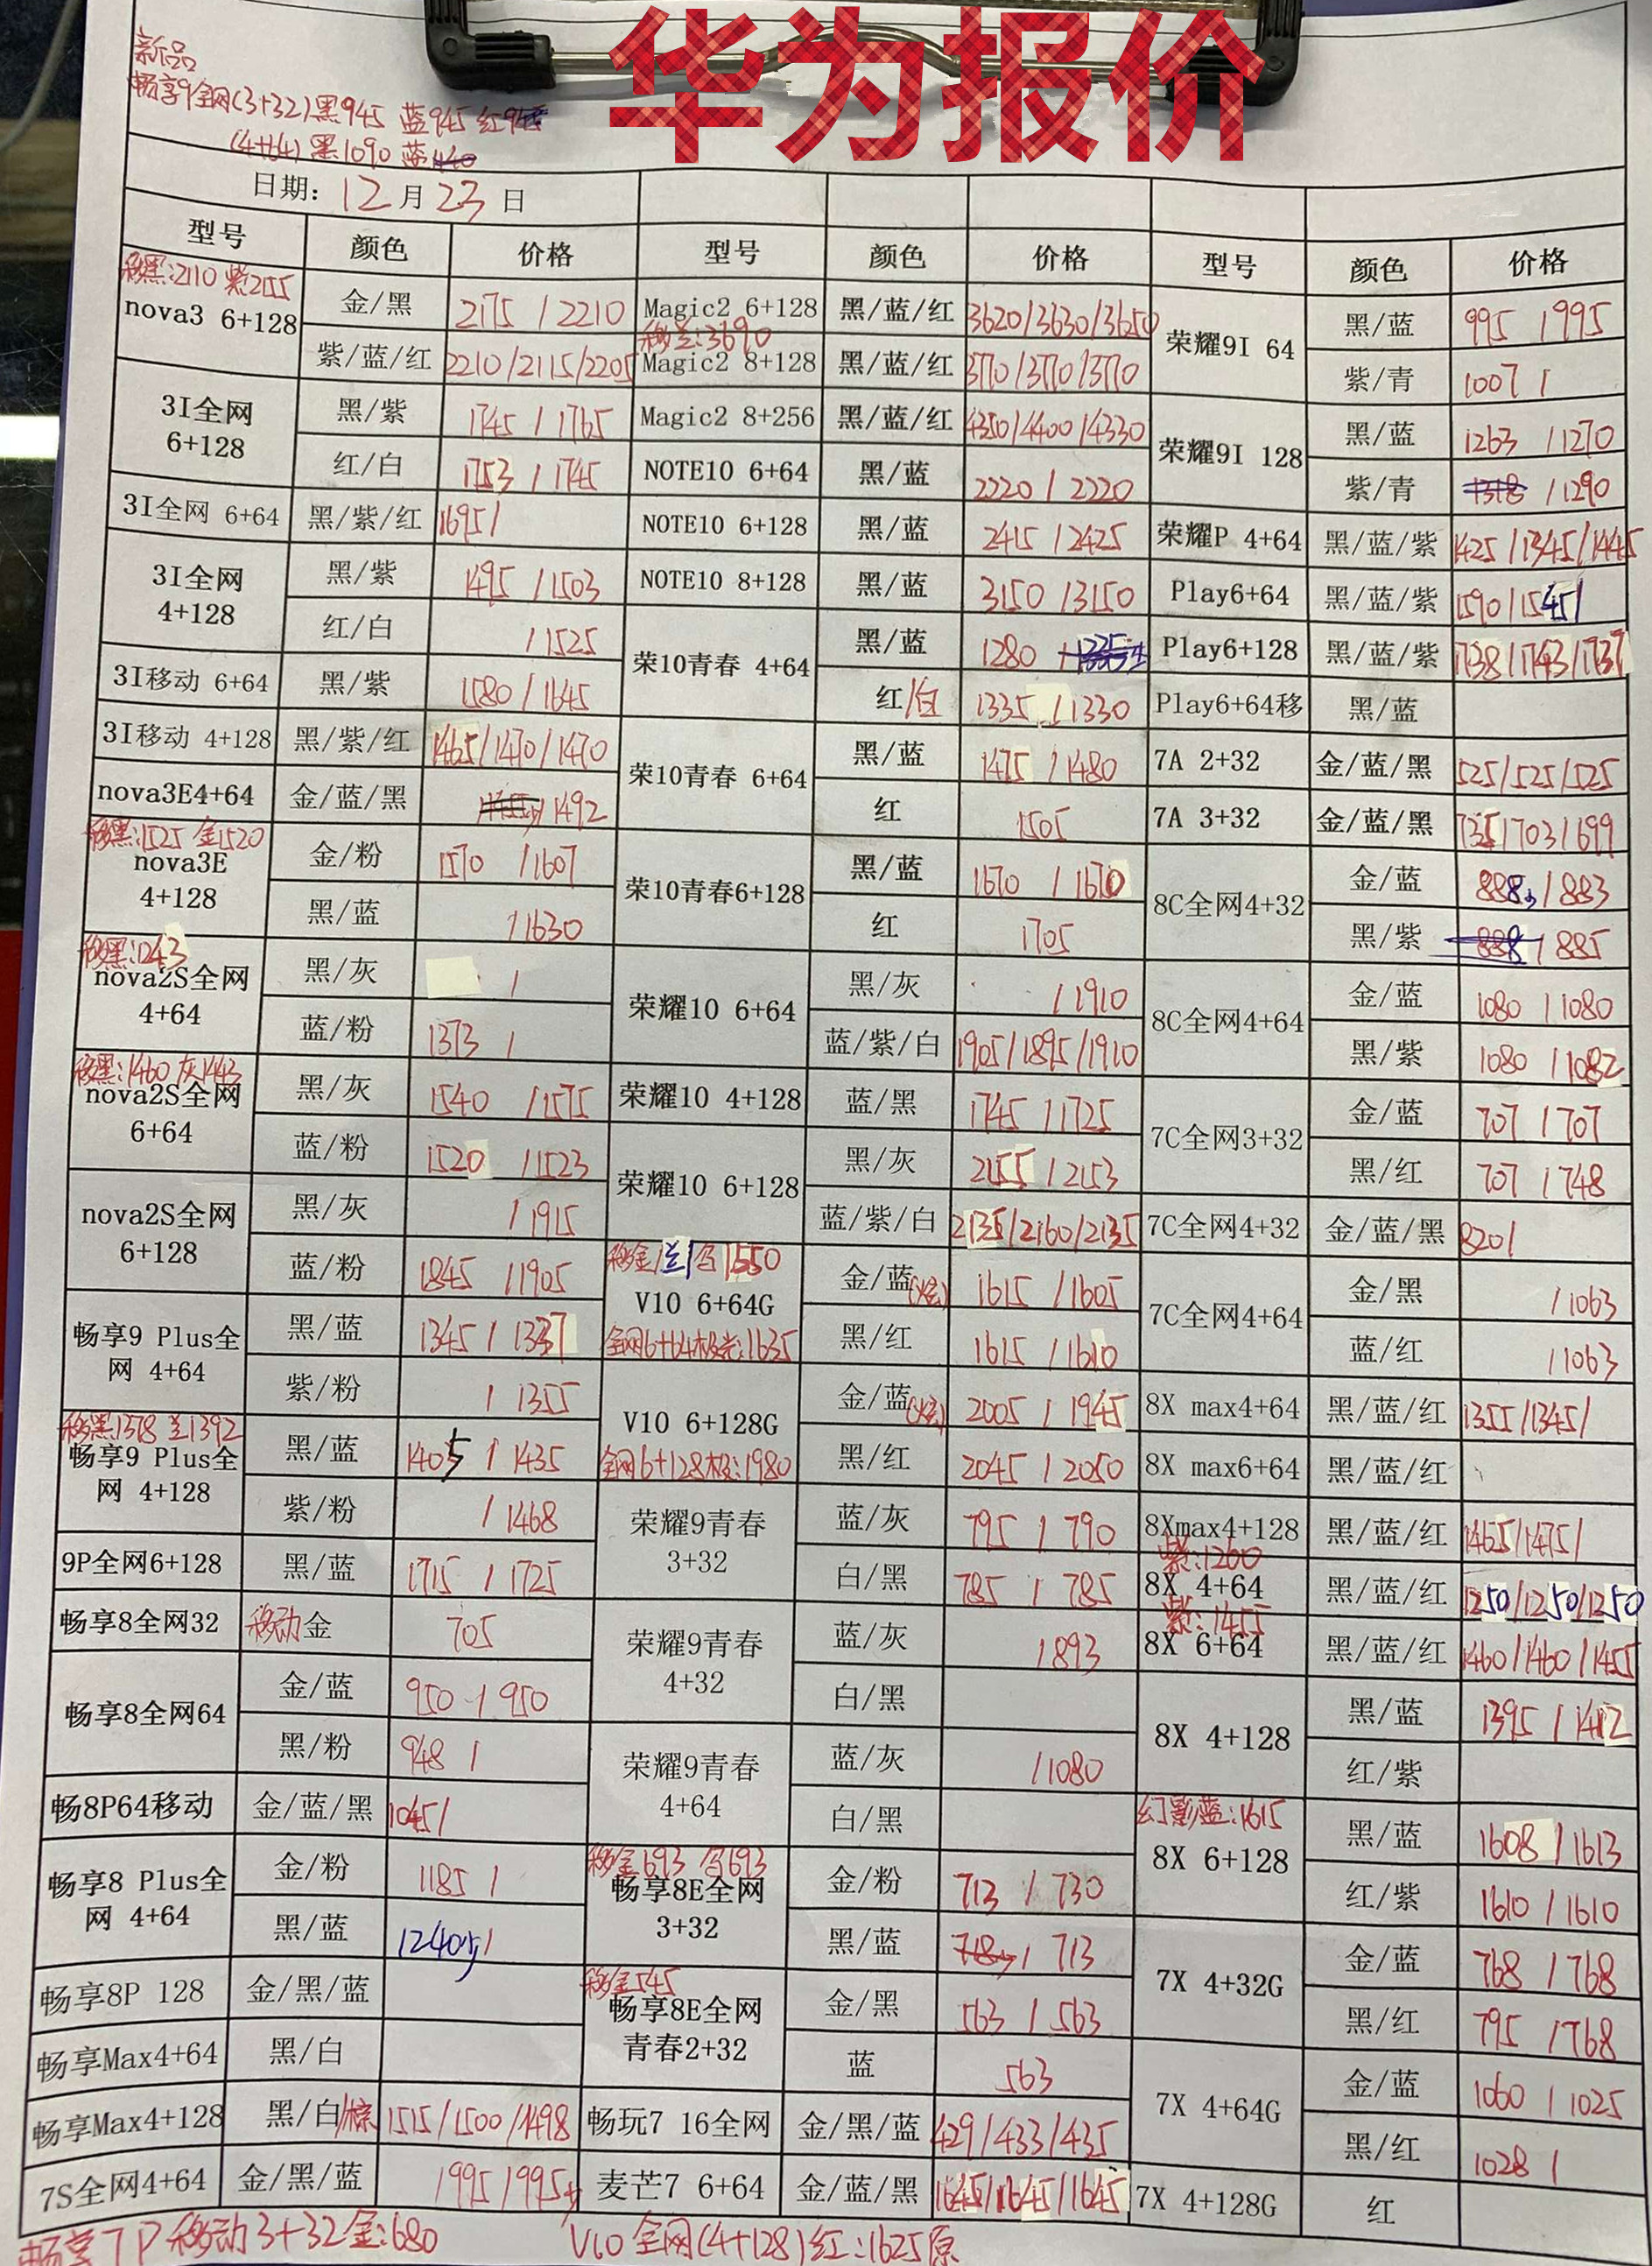 华为报价
新品
畅享9全网(3+32)黑945 蓝945 红945
(4+64) 黑1090 蓝
日期: 12月23日
型号 颜色 价格 型号 颜色 价格 型号 颜色 价格
移黑:2110 紫2155
nova3 6+128 金/黑 2175 / 2210
紫/蓝/红 2210/2115/2205
3I全网 6+128 黑/紫 1745 / 1765
红/白 1753 / 1745
3I全网 6+64 黑/紫/红 1695/
3I全网 4+128 黑/紫 1495 / 1503
红/白 / 1525
3I移动 6+64 黑/紫 1580 / 1645
3I移动 4+128 黑/紫/红 1465/1470/1470
nova3E4+64 金/蓝/黑 / 1492
移黑:1525 金1520
nova3E 4+128 金/粉 1570 / 1607
黑/蓝 / 1630
移黑:1243
nova2S全网 4+64 黑/灰 /
蓝/粉 1373 /
移黑:1460 灰1443
nova2S全网 6+64 黑/灰 1540 / 1575
蓝/粉 1520 / 1523
nova2S全网 6+128 黑/灰 / 1915
蓝/粉 1845 / 1905
畅享9 Plus全网 4+64 黑/蓝 1345 / 1337
紫/粉 / 1355
移黑1378 兰1392
畅享9 Plus全网 4+128 黑/蓝 1405 / 1435
紫/粉 / 1468
9P全网6+128 黑/蓝 1715 / 1725
畅享8全网32 移动金 705
畅享8全网64 金/蓝 950 / 950
黑/粉 948 /
畅8P64移动 金/蓝/黑 1045/
畅享8 Plus全网 4+64 金/粉 1185 /
黑/蓝 1240 /
畅享8P 128 金/黑/蓝
畅享Max4+64 黑/白
畅享Max4+128 黑/白/棕 1515/1500/1498
7S全网4+64 金/黑/蓝 / 995 / 995
Magic2 6+128 黑/蓝/红 3620/3630/3650
移兰:3690
Magic2 8+128 黑/蓝/红 3770/3770/3770
Magic2 8+256 黑/蓝/红 4350/4400/4330
NOTE10 6+64 黑/蓝 2220 / 2220
NOTE10 6+128 黑/蓝 2415 / 2425
NOTE10 8+128 黑/蓝 3150 / 3150
荣10青春 4+64 黑/蓝 1280 /
红/白 1335 / 1330
荣10青春 6+64 黑/蓝 1475 / 1480
红 1505
荣10青春6+128 黑/蓝 1670 / 1670
红 1705
荣耀10 6+64 黑/灰 / 1910
蓝/紫/白 1905/1895/1910
荣耀10 4+128 蓝/黑 1745 / 1725
荣耀10 6+128 黑/灰 2155 / 2153
蓝/紫/白 2135/2160/2135
移金/兰/ 1550
V10 6+64G 金/蓝 1615 / 1605
全网6+64极光:1635
黑/红 1615 / 1610
V10 6+128G 金/蓝 2005 / 1945
全网6+128极:1980
黑/红 2045 / 2050
荣耀9青春 3+32 蓝/灰 795 / 790
白/黑 785 / 785
荣耀9青春 4+32 蓝/灰 / 893
白/黑
荣耀9青春 4+64 蓝/灰 / 1080
白/黑
移金693 693
畅享8E全网 3+32 金/粉 713 / 730
黑/蓝 718 / 713
移金545
畅享8E全网 青春2+32 金/黑 563 / 563
蓝 563
畅玩7 16全网 金/黑/蓝 429/433/435
麦芒7 6+64 金/蓝/黑 1645/1645/1645
荣耀9I 64 黑/蓝 995 / 995
紫/青 1007 /
荣耀9I 128 黑/蓝 1263 / 1270
紫/青 1318 / 1290
荣耀P 4+64 黑/蓝/紫 1425/1345/1445
Play6+64 黑/蓝/紫 1590/1545/
Play6+128 黑/蓝/紫 1738/1743/1737
Play6+64移 黑/蓝
7A 2+32 金/蓝/黑 525/525/525
7A 3+32 金/蓝/黑 735/703/699
8C全网4+32 金/蓝 888 / 883
黑/紫 888 / 885
8C全网4+64 金/蓝 1080 / 1080
黑/紫 1080 / 1082
7C全网3+32 金/蓝 707 / 707
黑/红 707 / 748
7C全网4+32 金/蓝/黑 820/
7C全网4+64 金/黑 / 1063
蓝/红 / 1063
8X max4+64 黑/蓝/红 1355/1345/
8X max6+64 黑/蓝/红
8Xmax4+128 黑/蓝/红 1465/1475/
紫:1260
8X 4+64 黑/蓝/红 1250/1250/1250
紫:1455
8X 6+64 黑/蓝/红 1460/1460/1455
8X 4+128 黑/蓝 1395 / 1412
红/紫
幻影蓝:1615
8X 6+128 黑/蓝 1608 / 1613
红/紫 1610 / 1610
7X 4+32G 金/蓝 768 / 768
黑/红 795 / 768
7X 4+64G 金/蓝 1060 / 1025
黑/红 1028 /
7X 4+128G 红
畅享7P移动3+32金:680 V10全网(4+128)红:1625原